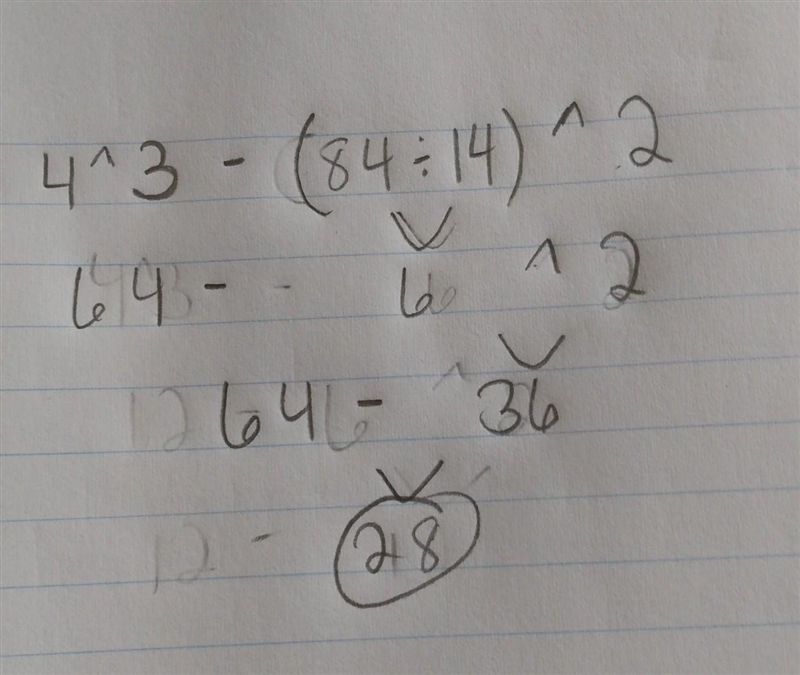 4^3 - (84÷14)^2
64 - 6 ^ 2
64 - 36
28